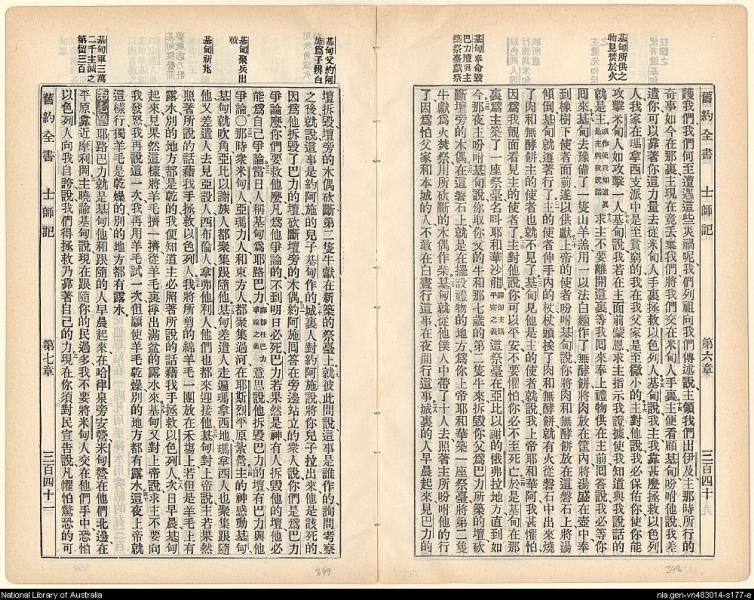 舊約全書 士師記 第六章 三百四十
基甸所供之
物見焚於火
基甸奉命毀
巴力壇與主
築祭臺獻祭
護我們我們何至遭遇這些災禍呢我們列祖向我們傳述說主領我們出伊及主那時所行的
奇事如今在那裏主現在竟丟棄我們將我們交在米甸人手裏主便看顧基甸吩咐他說我差
遣你可以靠著你這力量去從米甸人手裏拯救以色列人基甸說我主我靠甚麼拯救以色列
人我家在瑪拿西支派中是至貧窮的我在我父家是至微小的主對他說我必保佑你使你能
攻擊米甸人如攻擊一人基甸說我若在主面前蒙恩求主指示我證據使我知道與我說話的
就是主求主不要離開這裏等我回來奉上禮物供在主前回答說我必等你
回來基甸去豫備了一隻山羊羔用一以法白麵作了無酵餅將肉放在筐內將湯盛在壺中奉
到橡樹下使者面前遂以供獻上帝的使者吩咐基甸說你將肉和無酵餅放在這磐石上將湯
傾倒基甸就遵著行了主的使者伸手內的杖杖頭挨了肉和無酵餅就有火從磐石中出來燒
了肉和無酵餅主的使者也就不見了基甸見他是主的使者就說我主上帝耶和華阿我甚懼怕
因爲我覿面看見主的使者了主對他說你可以平安不要懼怕你必不至死亡於是基甸在那
裏爲主築了一座祭臺名叫耶和華沙龍這祭臺在亞比以謝的俄弗拉地方直到如
今那夜主吩咐基甸說你取你父的牛和那七歲的第二隻牛來拆毀你父爲巴力所築的壇砍
斷壇旁的木偶在這磐石上就是在擺設禮物的地方爲你上帝耶和華築一座祭臺將第二隻
牛獻爲火焚祭用所砍斷的木偶作柴基甸就從他僕人中帶了十人去照著主所吩咐他的行
了因爲怕父家和本城的人不敢在白晝行這事在夜間行這事城裏的人早晨起來見巴力的
基甸父約阿
施爲子辨白
基甸聚兵出
戰
基甸祈兆
基甸軍三萬
二千主諭之
第留三百
壇拆毀壇旁的木偶砍斷第二隻牛獻在新築的祭臺上就彼此問說這事是誰作的詢問考察
之後就說這事是約阿施的兒子基甸作的城裏人對約阿施說將你兒子拉出來他是該死的
因爲他拆毀了巴力的壇砍斷壇旁的木偶約阿施回答在旁邊站立的衆人說你們是爲巴力
爭論麼你們要救他麼凡爲他爭論的不到明日必死巴力若果然是神有人拆毀他的壇他必
能爲自己爭論當日人稱基甸爲耶路巴力意思說他拆毀巴力的壇有巴力與他
爭論○那時衆米甸人亞瑪力人和東方人都聚集過河在耶斯列平原紮營主的神感動基甸
基甸就吹角亞比以謝族人都聚集跟隨他基甸差遣人走遍瑪拿西地瑪拿西人也聚集跟隨
他又差遣人去見亞設人西布倫人拿弗他利人他們也都來迎接他基甸對上帝說主若果然
照著所說的話藉我手拯救以色列人我將所剪的綿羊毛一團放在禾場上若但是羊毛上有
露水別的地方都是乾的我便知道主必照著所說的話藉我手拯救以色列人次日早晨基甸
起來見果然這樣將羊毛擠一擠從羊毛裏擠出滿盆的露水來基甸又對上帝說求主不要向
我發怒我再說這一次我再用羊毛試一次但願使羊毛乾燥別的地方都有露水這夜上帝就
這樣行獨羊毛是乾燥的別的地方都有露水
第七章耶路巴力就是基甸他和跟隨的人早晨起來在哈律泉旁安營米甸營在他們北邊在
平原靠近摩利岡主曉諭基甸說現在跟隨你的民過多我不要將米甸人交在他們手中恐怕
以色列人向我自誇說我們得拯救乃靠著自己的力現在你須對民宣告說凡懼怕驚恐的可
舊約全書 士師記 第七章 三百四十一
National Library of Australia
nla.gen-vn483014-s177-e